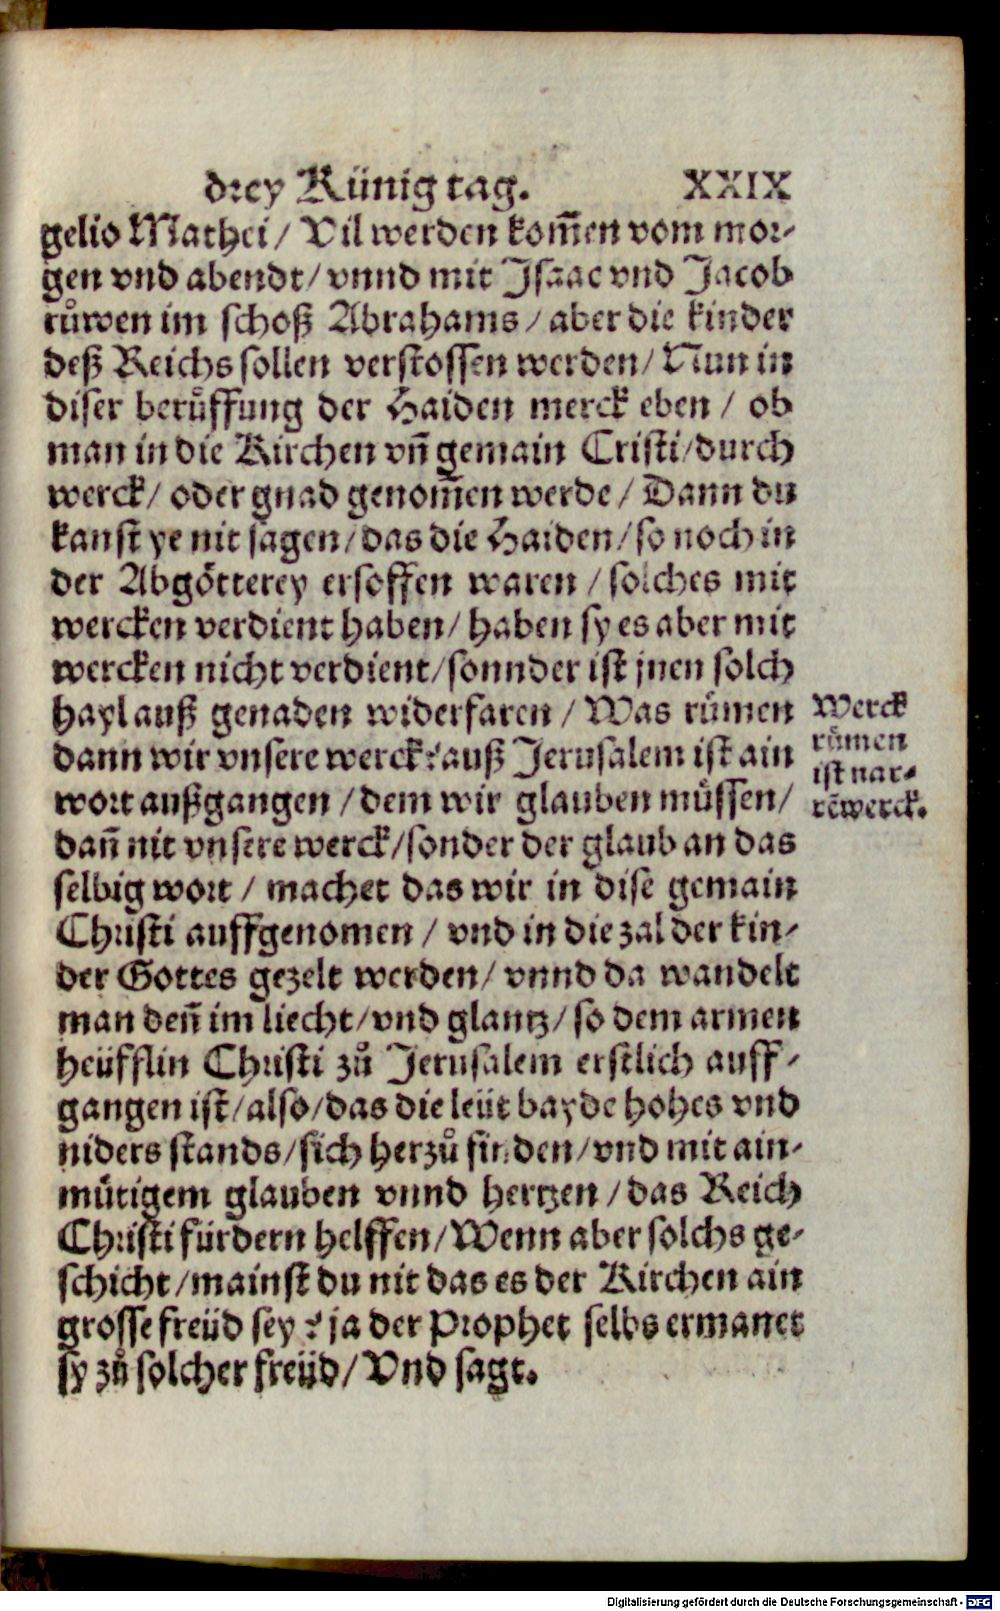 drey Künig tag. XXIX
gelio Mathei / Vil werden kom̃en vom mor-
gen vnd abendt / vnnd mit Jsaac vnd Jacob
růwen im schoß Abrahams / aber die kinder
deß Reichs sollen verstossen werden / Nun in
diser berůffung der Haiden merck eben / ob
man in die Kirchen vñ gemain Cristi / durch
werck / oder gnad genom̃en werde / Dann du
kanst ye nit sagen / das die Haiden / so noch in
der Abgötterey ersoffen waren / solches mit
wercken verdient haben / haben sy es aber mit
wercken nicht verdient / sonnder ist jnen solch
hayl auß genaden widerfaren / Was růmen
dann wir vnsere werck? auß Jerusalem ist ain
wort außgangen / dem wir glauben müssen /
dañ nit vnsere werck / sonder der glaub an das
selbig wort / machet das wir in dise gemain
Christi auffgenomen / vnd in die zal der kin-
der Gottes gezelt werden / vnnd da wandelt
man deñ im liecht / vnd glantz / so dem armen
heüfflin Christi zů Jerusalem erstlich auff-
gangen ist / also / das die leüt bayde hohes vnd
niders stands / sich herzů finden / vnd mit ain-
mütigem glauben vnnd hertzen / das Reich
Christi fürdern helffen / Wenn aber solchs ge-
schicht / mainst du nit das es der Kirchen ain
grosse freüd sey? ja der Prophet selbs ermanet
sy zů solcher freüd / Vnd sagt.
Werck
rümen
ist nar-
rẽwerck.
Digitalisierung gefördert durch die Deutsche Forschungsgemeinschaft - DFG